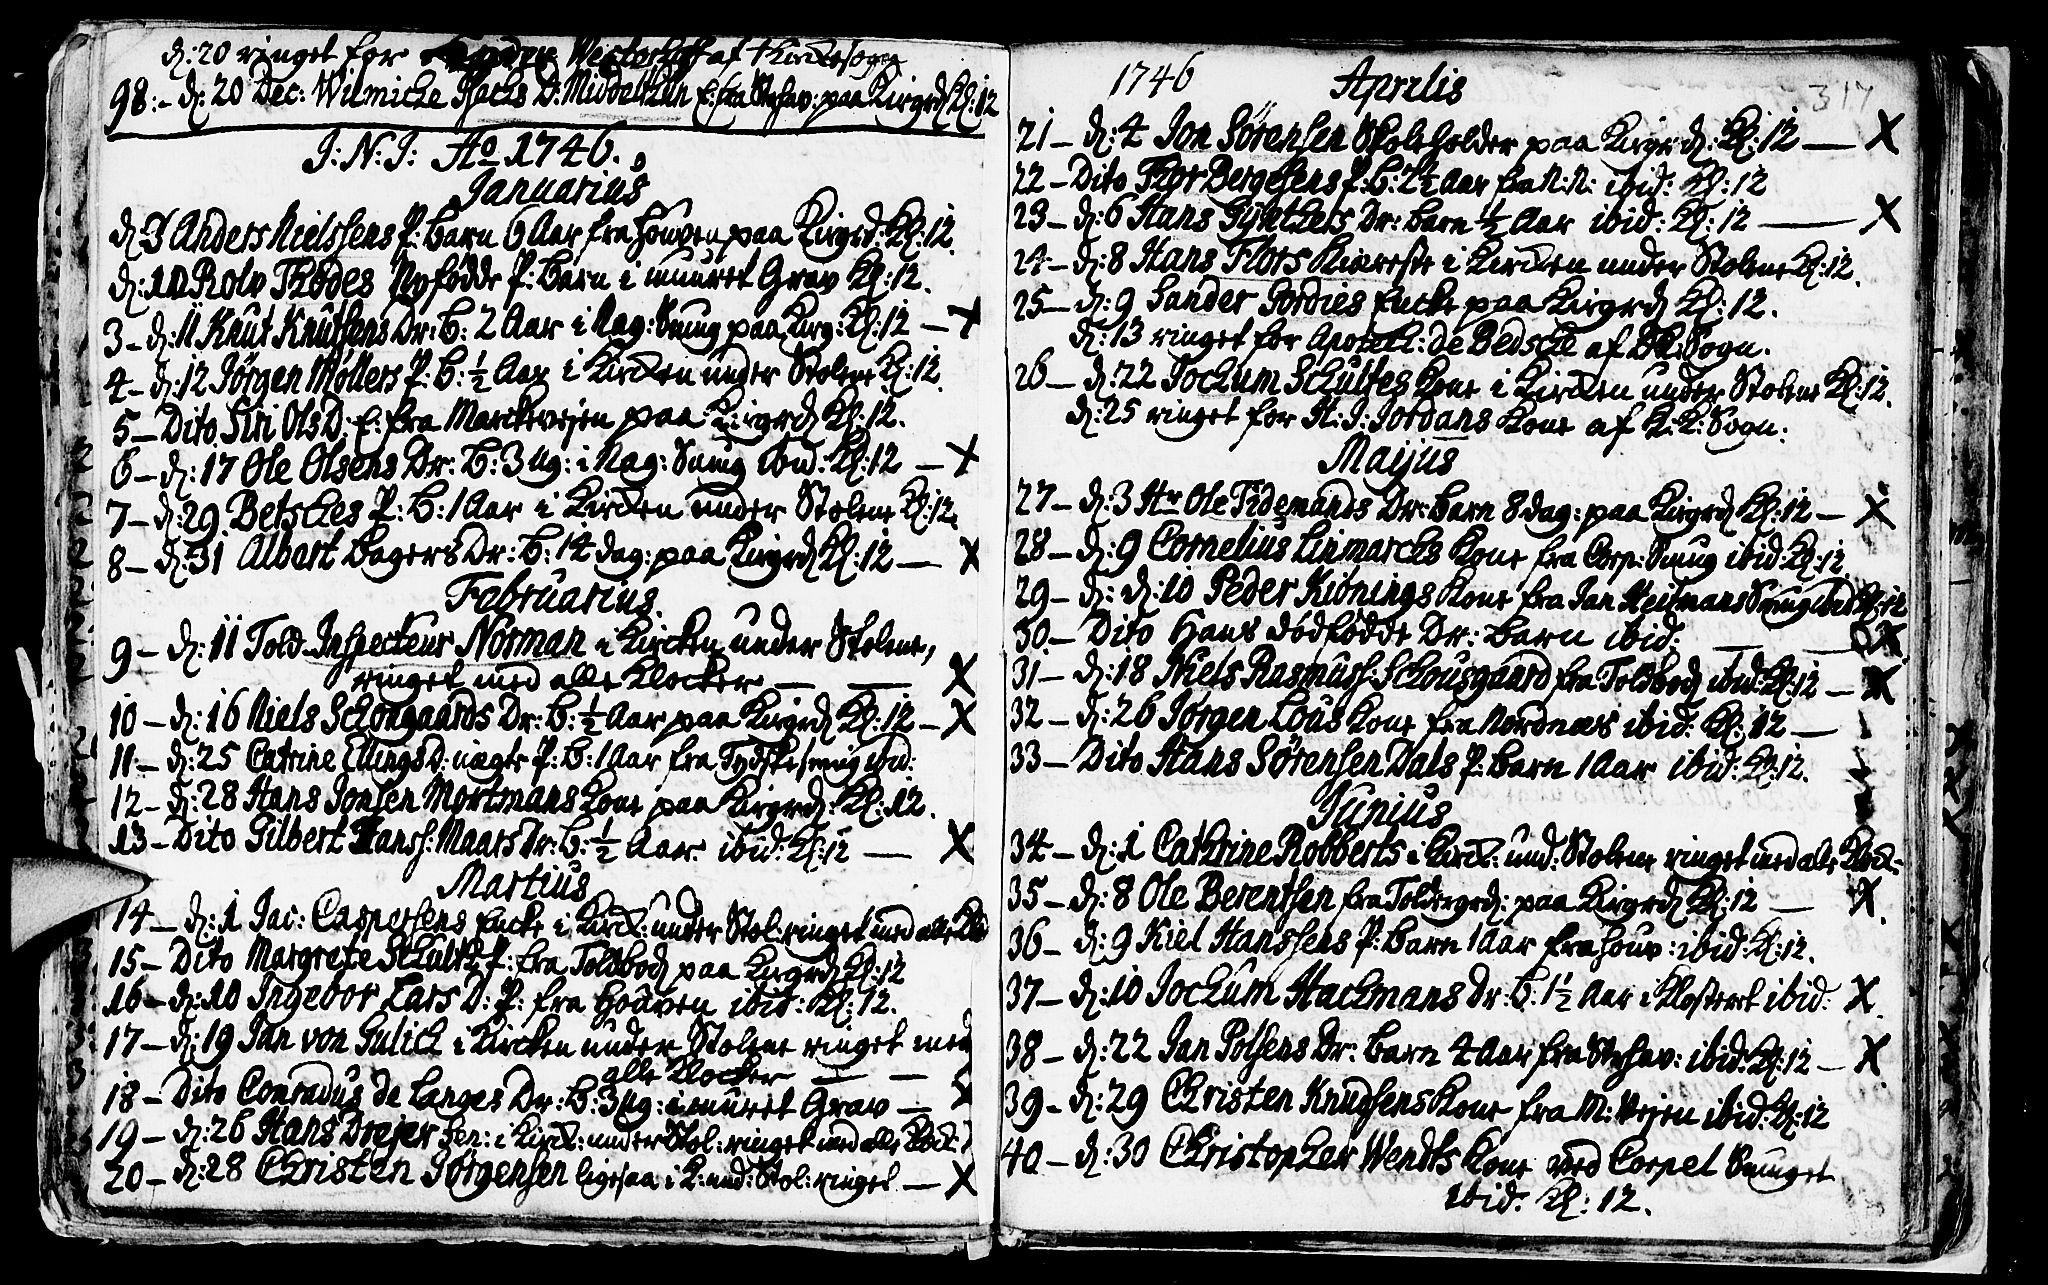 d: 20 ringet for Westerhoff af +Kirckesogn
98:- d: 20 Dec: Wilmiche Sachs D: Middelthun E: fra Strhav: paa Kirgrd Kl: 12
J: N: J: Ao 1746.
Januarius
d 3 Anders Nielssens P: barn 6 Aar fra Houven paa Kirgrd: Kl: 12.
d: 10 Rolv Thodes Nyfødde P: barn i muuret Grav Kl: 12.
3 - d: 11 Knut Knutsens Dr: B: 2 Aar i Nag: Smug paa Kirg: Kl: 12 — X
4 - d: 12 Jørgen Møllers P: B: ½ Aar i Kircken under Stolene Kl: 12.
5 - Dito Siri Ols D: E: fra Marckevejen paa Kirgrd Kl: 12.
6 - d: 17 Ole Olsens Dr: B: 3 ug: i Nag: Smug ibid: Kl: 12 — X
7 - d: 29 Betsches P: B: 1 Aar i Kircken under Stolene Kl: 12.
8 - d: 31 Albert Bagers Dr: B: 14 dag: paa Kirgrd Kl: 12 — X
Februarius.
9 - d: 11 Told Inspecteur Norman i Kircken under Stolene,
ringet med alle Klocker — — X
10 - d: 16 Niels Schougaards Dr: B: ½ Aar paa Kirgrd Kl: 12 - X
11 - d: 25 Catrine Ellings D: uægte P: B: 1 Aar fra Tydskesmug ibid:
12 - d: 28 Hans Jonsen Mortmans Kone paa Kirgrd: Kl: 12.
13 - Dito Gilbert Hanss: Maars Dr: B: ½ Aar. ibid: Kl: 12 — X
Martius
14 - d: 1 Jac: Caspersens Encke i Kirck: under Stol: ringet med alle Klo
15 - Dito Margrete Schultz P: fra Toldbod paa Kirgrd Kl: 12
16 - d: 10 Ingebor Lars D: P: fra Houven ibid: Kl: 12.
17 - d: 19 Jan von Gulich i Kircken under Stolene ringet med
alle Klocker — —
18 - Dito Conradus de Langes Dr: B: 3 ug: i muuret Grav — X
19 - d: 26 Hans Drejer Sen: i Kirck: under Stol: ringet med alle Klock:
20 - d: 28 Christen Jørgensen ligesaa i K: und: Stol: ringet — X
1746 Aprilis 317
21 - d: 4 Jon Sørensen Skoleholder paa Kirgrd: Kl: 12 — X
22 - Dito Thor Bergesens P: B: 2½ Aar fra N: N: ibid: Kl: 12
23 - d: 6 Hans Gynthers Dr: barn ½ Aar ibid: Kl: 12 — X
24 - d: 8 Hans Flors Kiæreste i Kircken under Stolene Kl: 12.
25 - d: 9 Sander Gordies Encke paa Kirgrd Kl: 12.
d: 13 ringet for Apoteth: de Bedsche af D: K: Sogn.
26 - d: 22 Jochum Schultes Kone i Kircken under Stolene Kl: 12.
d: 25 ringet for H: J: Jordans Kone af K: K: Sogn:
Maijus
27 - d: 3 Hr Ole Tidemands Dr: barn 8 dag: paa Kirgrd Kl: 12 — X
28 - d: 9 Cornelius Linmarchs Kone fra Corp: Smug ibid: Kl: 12.
29 - d: d: 10 Peder Kiønings Kone fra Jan Heitmans Smug ibid Kl: 12
30 - Dito Hans dødfødde Dr: barn ibid: — —
31 - d: 18 Niels Rasmuss: Schousgaard fra Toldbod ibid: Kl: 12 — X
32 - d: 26 Jørgen Lous Kone fra Nordnæs ibid: Kl: 12 —
33 - Dito Hans Sørensen Dals P: barn 1 Aar ibid: Kl: 12.
Junius
34 - d: 1 Cathrine Robberts i Kirck: und: Stolene ringet med alle Klock:
35 - d: 8 Ole Berentsen fra Toldergrd: paa Kirgrd Kl: 12 — X.
36 - d: 9 Kiel Hanssens P: barn 1 Aar fra Houv: ibid: Kl: 12.
37 - d: 10 Jochum Hachmans Dr: B: 1½ Aar i Klosteret ibid: X.
38 - d: 22 Jan Polsens Dr: barn 4 Aar fra Strhav: ibid: Kl: 12 — X
39 - d: 29 Christen Knudsens Kone fra M: Vejen ibid: Kl: 12
40 - d: 30 Christopher Wendts Kone ved Corpel Smuget
ibid: Kl: 12.